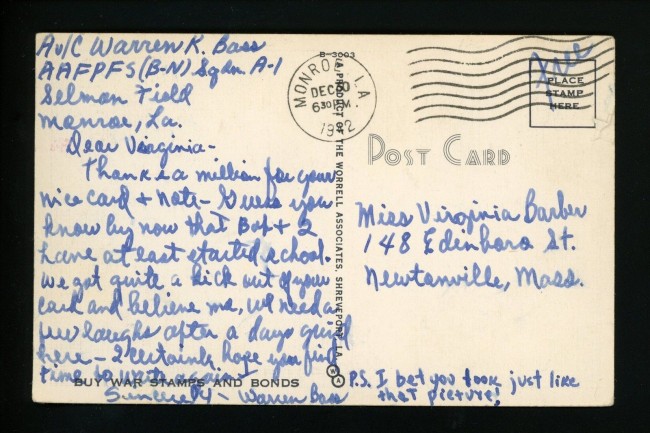 Av/C Warren K. Bass
AAFPFS (B-N) Sqdn. A-1
Selman Field
Monroe, La.
Dear Virginia-
Thanks a million for your
nice card & note - Guess you
know by now that Bob & I
have at last started school.
We got quite a kick out of your
card and believe me, we need a
few laughs after a days grind
here - I certainly hope you find
time to write again!
Sincerely - Warren Bass
BUY WAR STAMPS AND BONDS
B-3003
A PRODUCT OF THE WORRELL ASSOCIATES, SHREVEPORT, LA.
MONROE, LA
DEC
630 PM
1942
Free
PLACE
STAMP
HERE
POST CARD
Miss Virginia Barber
148 Edinboro St.
Newtonville, Mass.
P.S. I bet you took just like
that picture!